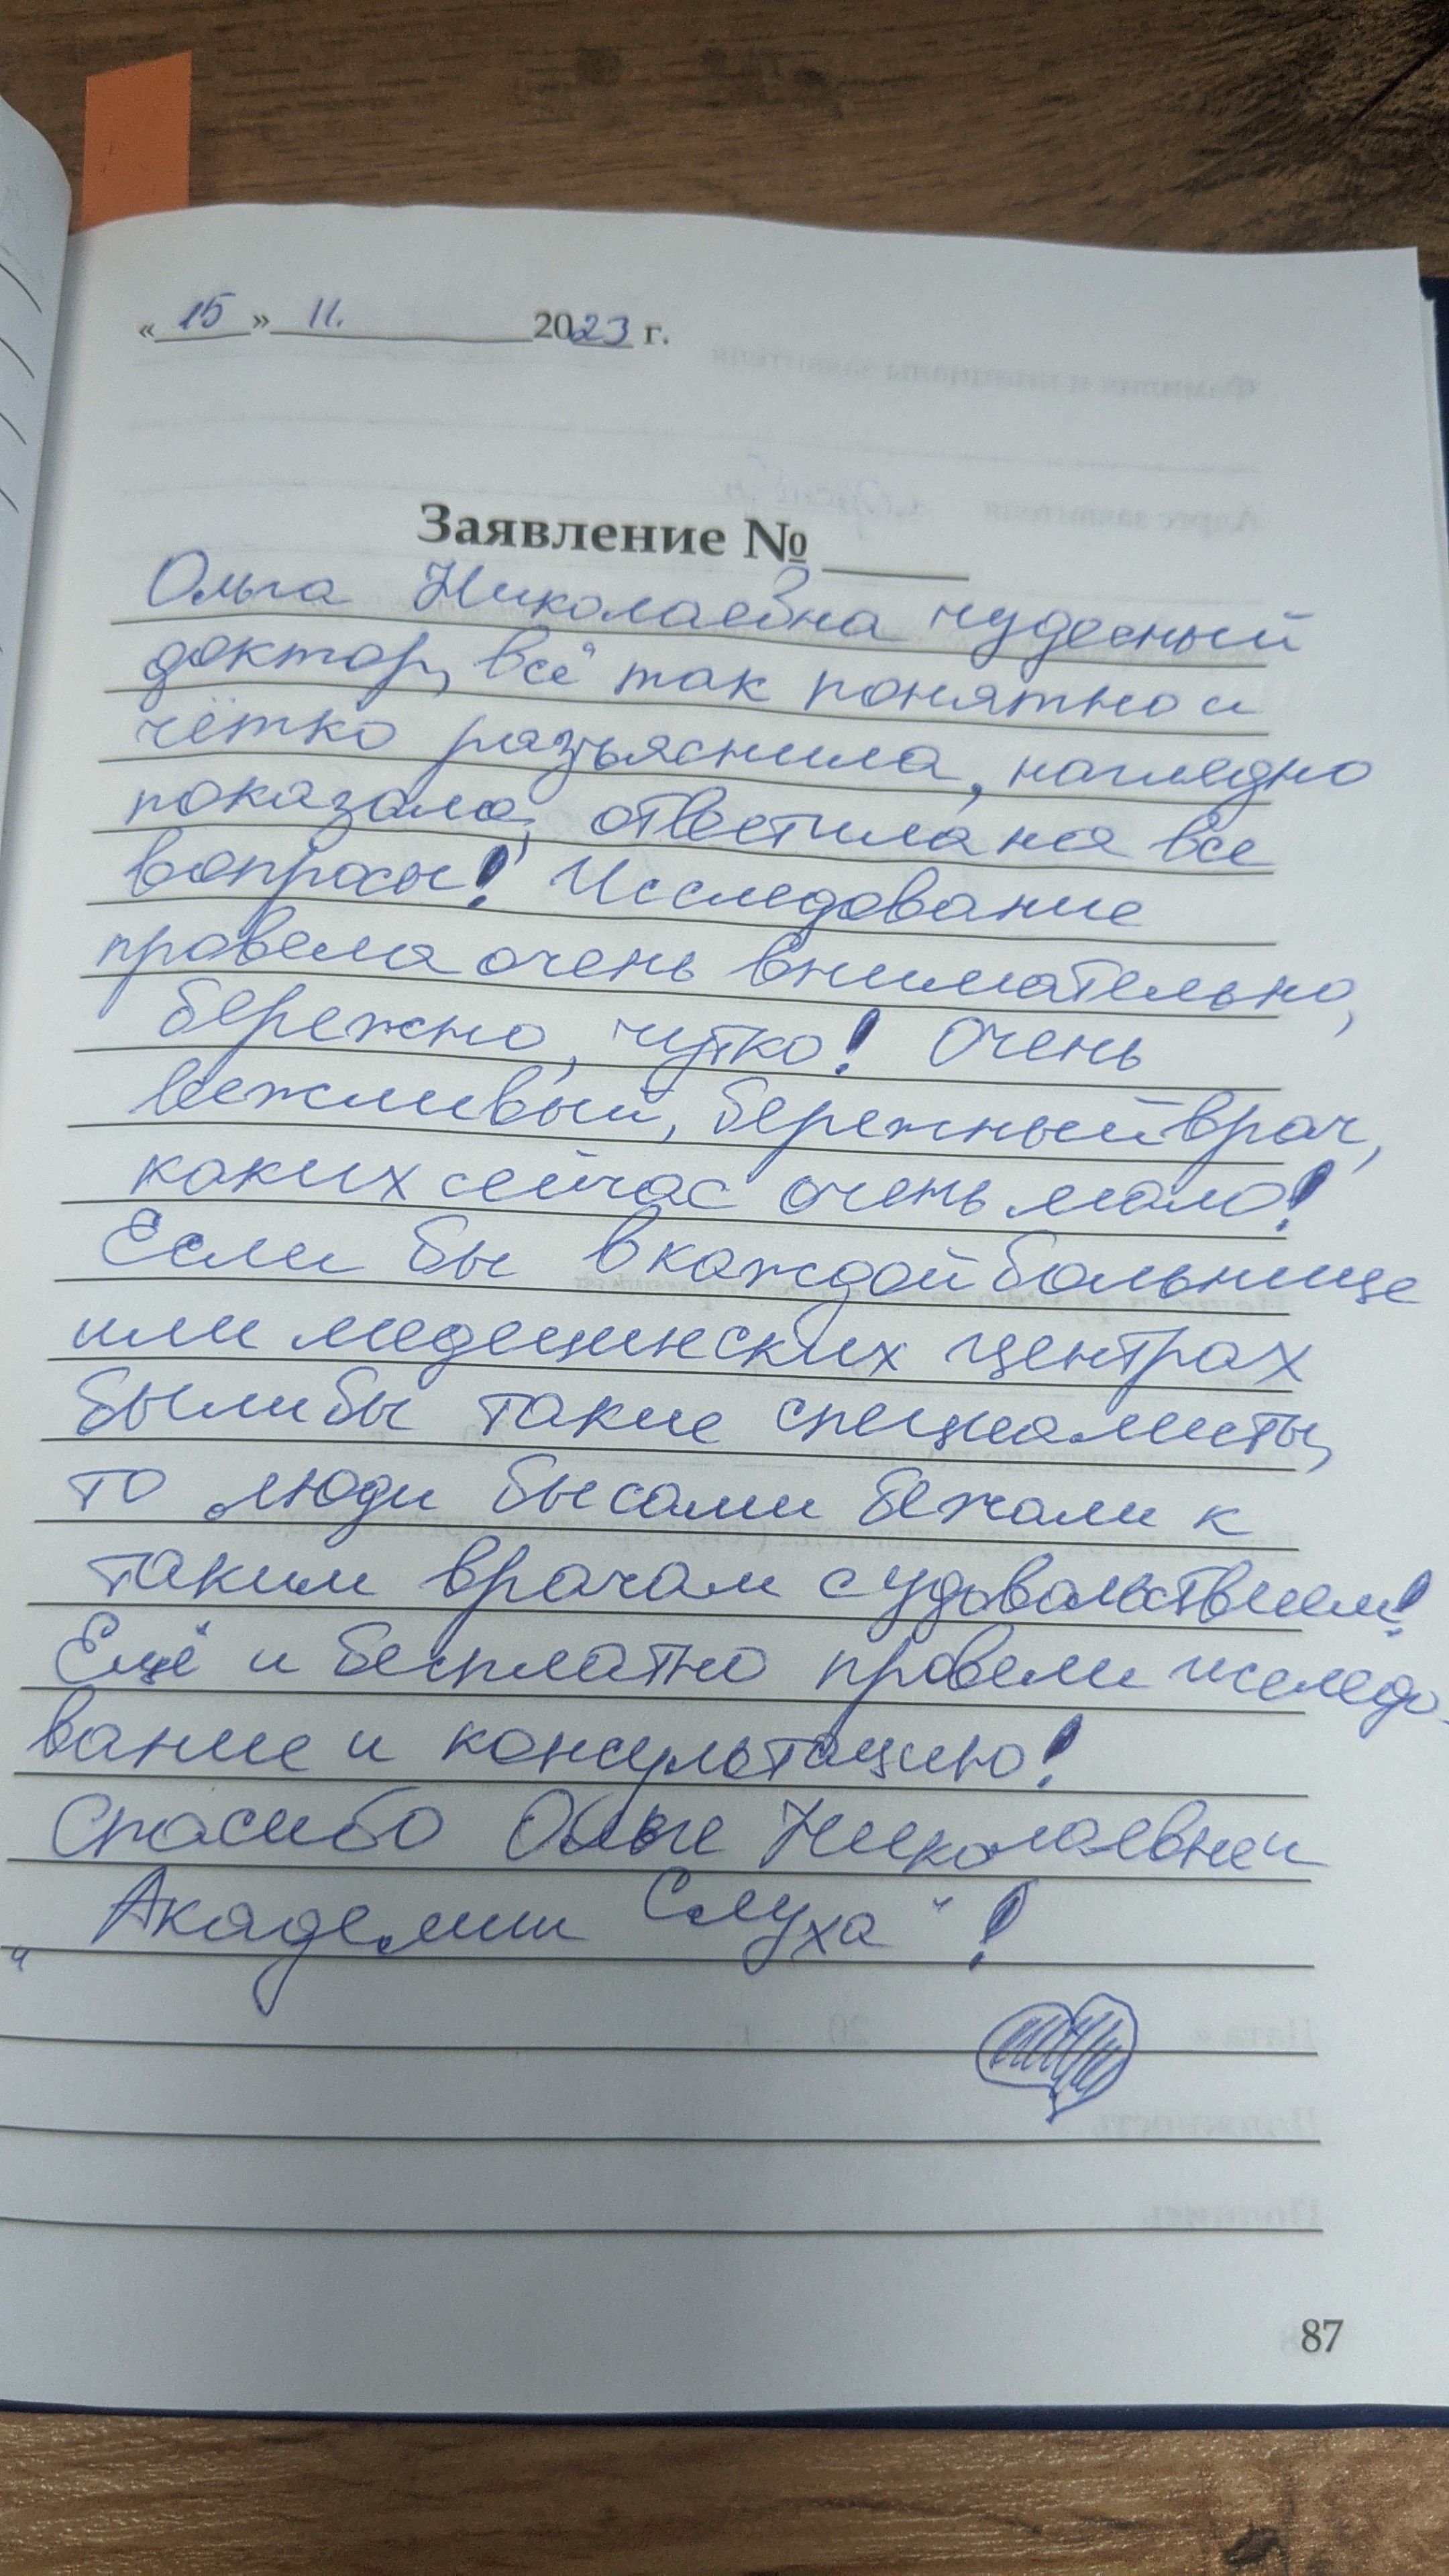 « 15 » 11. 2023 г.
Заявление №
Ольга Николаевна чудесный
доктор, всё так понятно и
чётко разъяснила, наглядно
показала, ответила на все
вопросы! Исследование
провела очень внимательно,
бережно, чутко! Очень
вежливый, бережный врач,
каких сейчас очень мало!
Если бы в каждой больнице
или медецинских центрах
были бы такие специалисты,
то люди бы сами бежали к
таким врачам с удовольствием!
Ещё и бесплатно провели иследо-
вание и консультацию!
Спасибо Ольге Николаевне и
„Академии Слуха“!
87